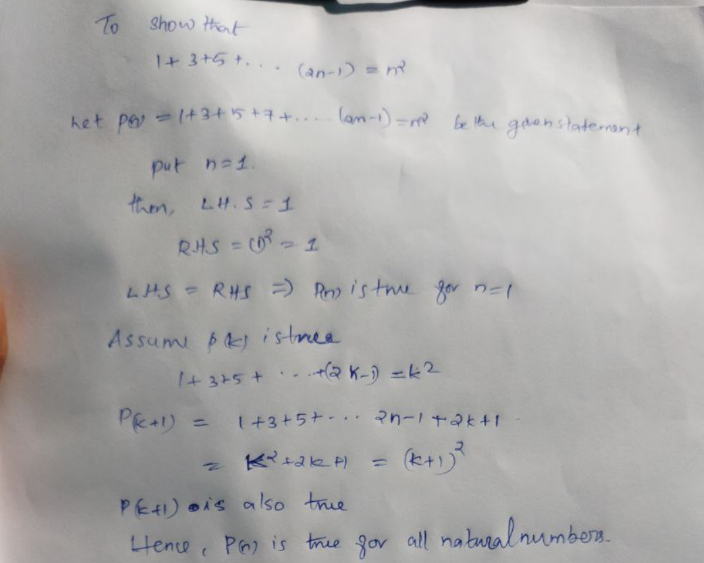 To show that
1+3+5+... (2n-1) = n²
Let P(n) = 1+3+5+7+.... (2n-1)=n² be the given statement
put n=1.
then, LH.S = 1
R.H.S = (1)² = 1
LHS = RHS ⇒ P(n) is true for n=1
Assume p(k) is true
1+3+5+ ...+(2k-1) =k²
P(k+1) = 1+3+5+... 2n-1+2k+1
= k²+2k+1 = (k+1)²
P(k+1) is also true
Hence, P(n) is true for all natural numbers.